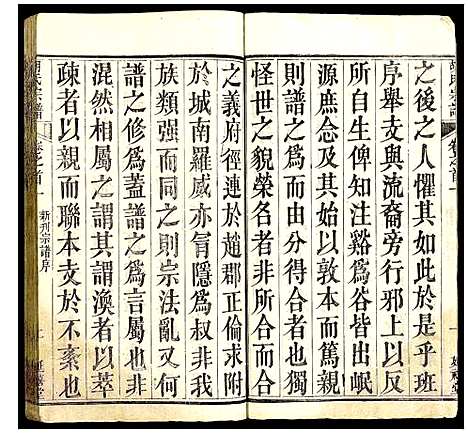 之後之人懼其如此於是乎班
序舉支與流裔旁行邪上以反
所自生俾知注谿為谷皆出岷
源庶念及其始以敦本而展親
則譜之為義所以合異而為同
怪世之貌榮名者非所合而合
之義府徑連於趙郡正倫求附
於城南羅威亦冐隱為叔非我
族類強而同之則宗法亂又何
譜之修為蓋譜之為言屬也非
混然相屬之謂其謂渙者以萃
疎者以親而聯本支於不紊也
胡氏宗譜
卷之首一
新刋宗譜序